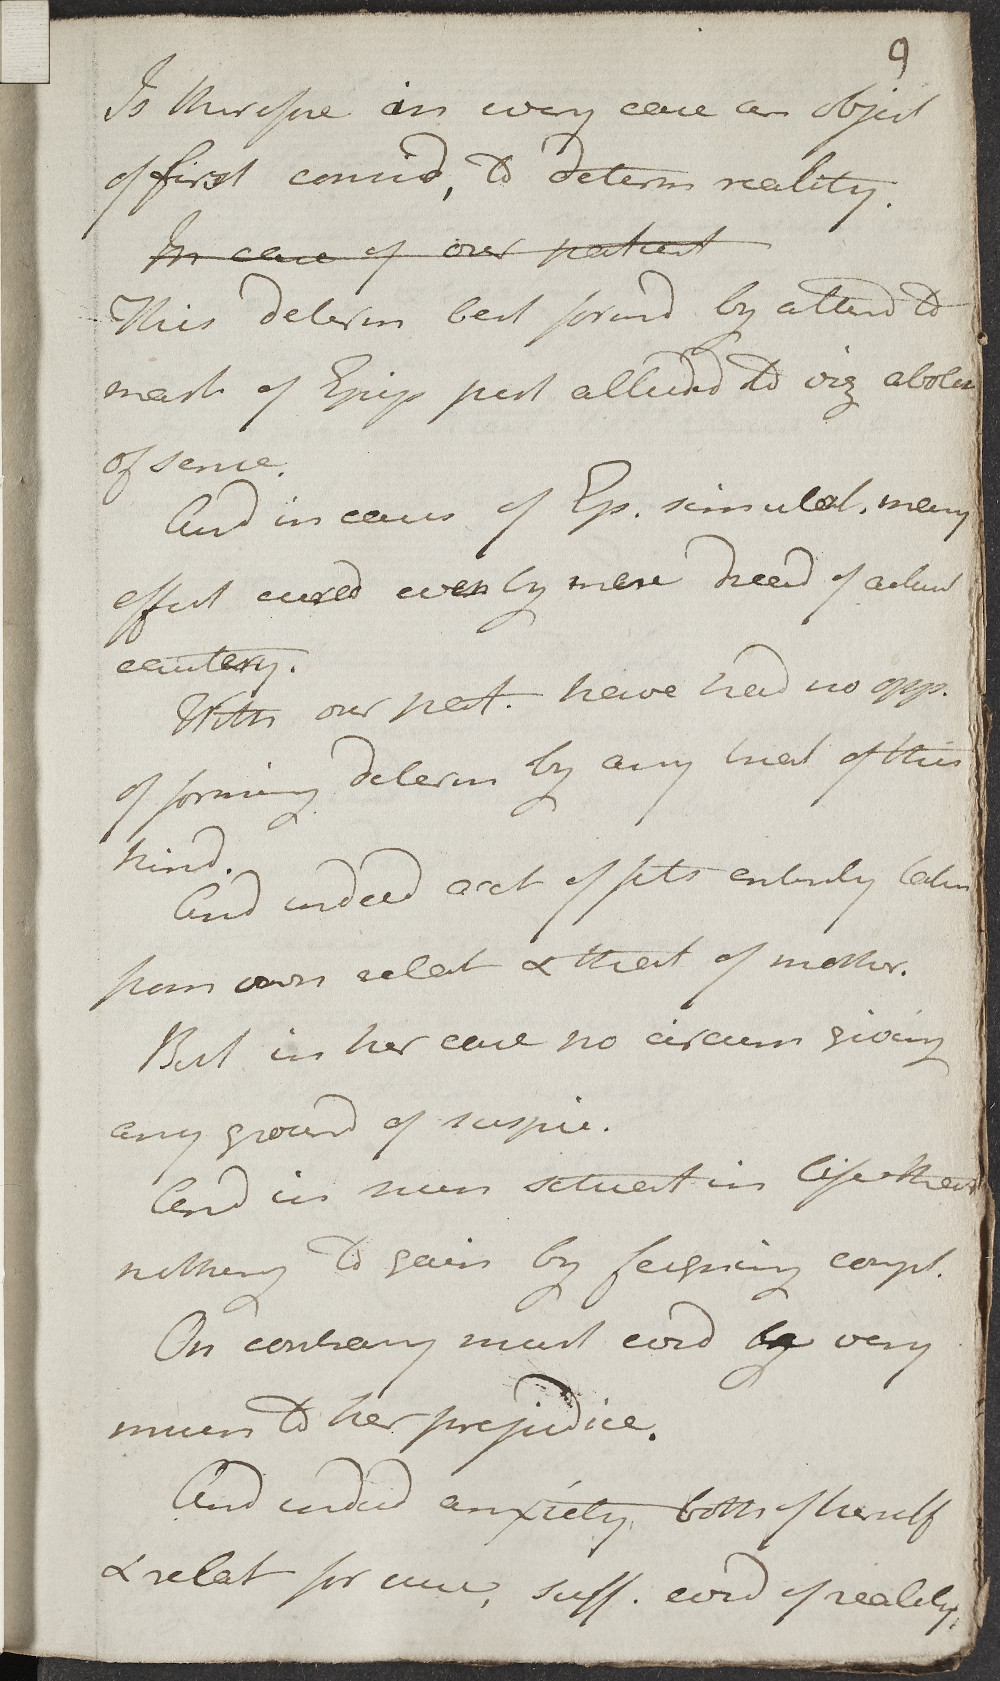 9
Is therefore in every case an object
of first consid, to determ reality.
In case of our patient
This determ best formd by attend to
mark of Epieps just allud to viz abolit
of sense.
And in cases of Ep. simulat. many
effect cured even by mere dread of actual
cautery.
With our pat. have had no opp.
of forming determ by any trial of this
kind.
And indeed acct of fits entirely taken
from own relat & that of mother.
But in her case no circum giving
any ground of suspic.
And in near situat in life
nothing to gain by feigning compl.
On contrary must evid be very
much to her prejudice.
And indeed anxiety both of herself
& relat for cure, suff. evid of reality.